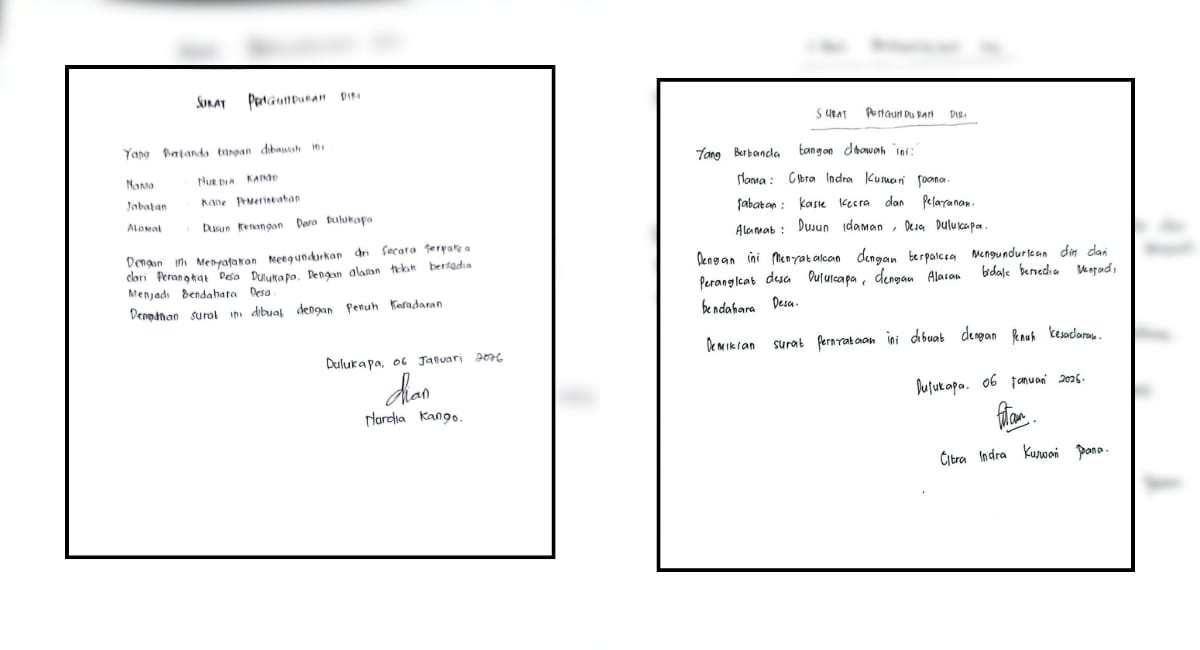 SURAT PENGUNDURAN DIRI
Yang Bertanda tangan dibawah ini
Nama : NURDIA KANGO
Jabatan : Kaur Pemerintahan
Alamat : Dusun Kenangan Desa Dulukapa
Dengan ini Menyatakan Mengundurkan diri Secara terpaksa
dari Perangkat Desa Dulukapa. Dengan alasan tidak bersedia
Menjadi Bendahara Desa.
Demikian surat ini dibuat dengan Penuh Kesadaran
Dulukapa, 06 Januari 2026
Nardia Kango.
SURAT PENGUNDURAN DIRI
Yang Bertanda tangan dibawah ini:
Nama : Citra Indra Kusuari
Jabatan : Kasie Kesra dan Pelayanan.
Alamat : Dusun idaman, Desa Dulukapa.
Dengan ini Menyatakan dengan terpaksa Mengundurkan diri dari
Perangkat desa Dulukapa, dengan Alasan tidak bersedia Menjadi
bendahara Desa.
Demikian surat pernyataan ini dibuat dengan Penuh kesadaran.
Dulukapa. 06 Januari 2026.
Citra Indra